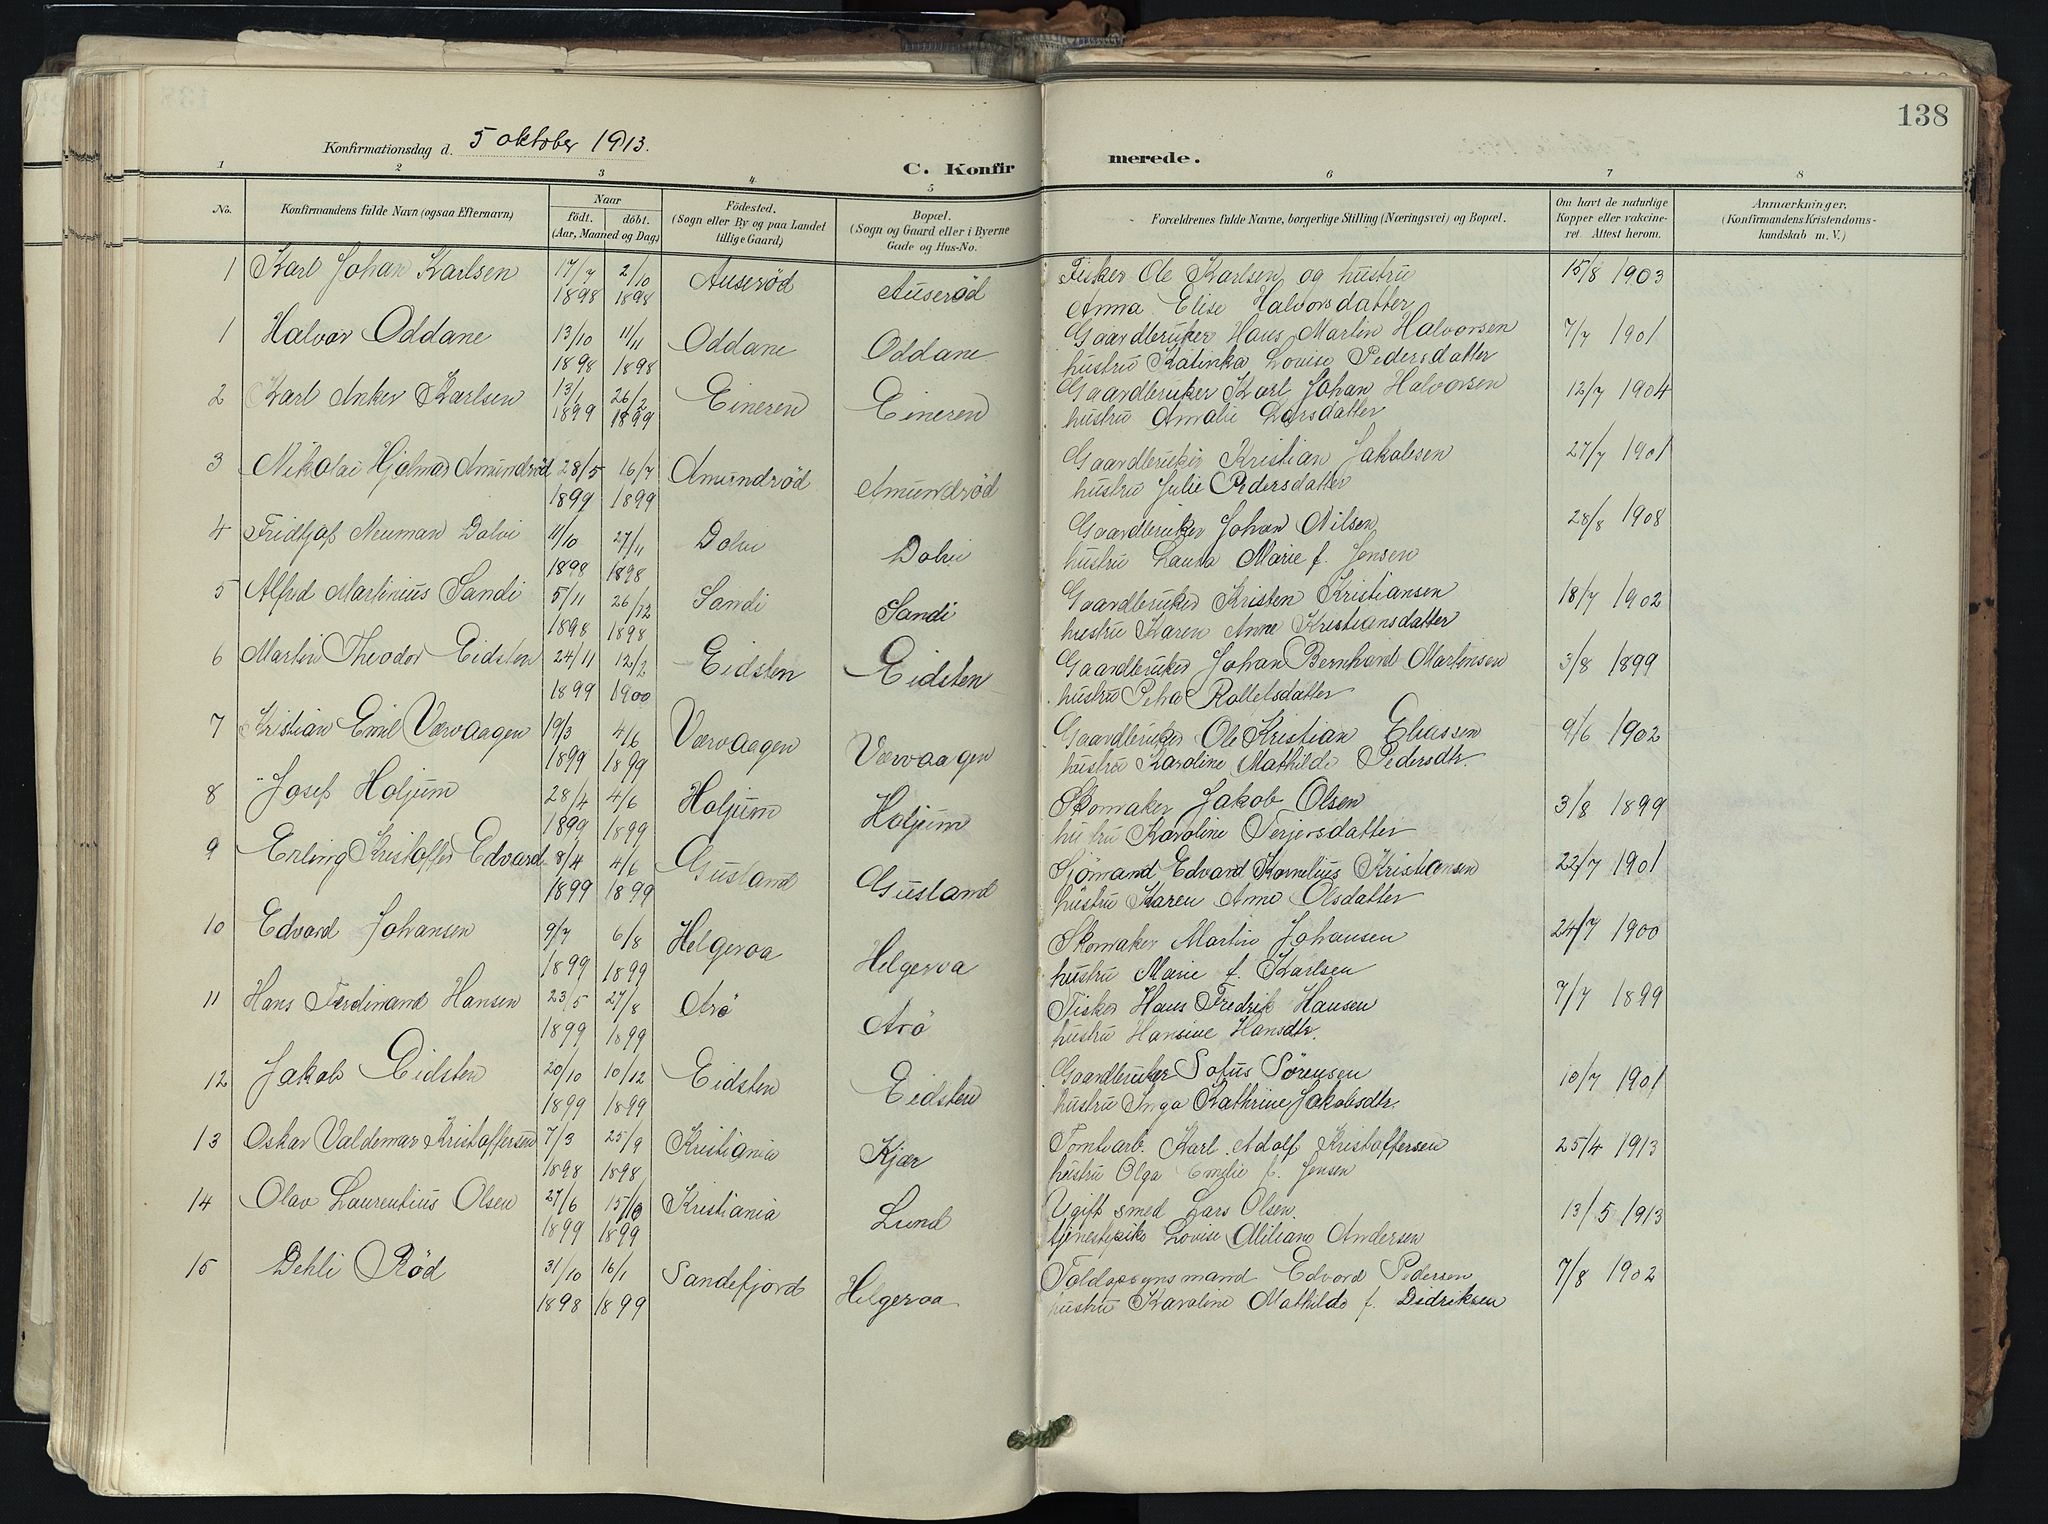 138
Konfirmationsdag d. 5 oktober 1913.
C. Konfirmerede.
1 2 3 4 5 6 7 8
No. Konfirmandens fulde Navn (ogsaa Efternavn) Naar født. døbt. (Aar, Maaned og Dag) Födested. (Sogn eller By og paa Landet tillige Gaard) Bopæl. (Sogn og Gaard eller i Byerne Gade og Hus-No. Forældrenes fulde Navne, borgerlige Stilling (Næringsvei) og Bopæl. Om havt de naturlige Kopper eller vakcineret. Attest herom. Anmærkninger, (Konfirmandens Kristendomskundskab m. V.)
1 Karl Johan Karlsen 17/7 1898 2/10 1898 Auserød Auserød Fisker Ole Karlsen og hustru 15/8 1903
Anna Elise Halvorsdatter
1 Halvor Oddane 13/10 1898 11/11 1898 Oddane Oddane Gaardbruker Hans Martin Halvorsen 7/7 1901
hustru Katinka Lovise Pedersdatter
2 Karl Anker Karlsen 13/1 1899 26/2 1899 Eineren Eineren Gaardbruker Karl Johan Halvorsen 12/7 1904
hustru Amalie Larsdatter
3 Nikolai Hjalmar Amundrød 28/5 1899 16/7 1899 Amundrød Amundrød Gaardbruker Kristian Jakobsen 27/7 1901
hustru Julie Pedersdatter
4 Fridtjof Neuman Dolvi 11/10 1898 27/11 1898 Dolvi Dolvi Gaardbruker Johan Nilsen 28/8 1908
hustru Laura Marie f. Jensen
5 Alfred Martinius Sandi 5/11 1898 26/12 1898 Sandi Sandi Gaardbruker Kristen Kristiansen 18/7 1902
hustru Karen Anne Kristiansdatter
6 Martin Theodor Eidsten 24/11 1899 12/2 1900 Eidsten Eidsten Gaardbruker Johan Bernhard Martinsen 3/8 1899
hustru Petra Rollefsdatter
7 Kristian Emil Værvaagen 19/3 1899 4/6 1899 Værvaagen Værvaagen Gaardbruker Ole Kristian Eliassen 9/6 1902
hustru Karoline Mathilde Pedersdtr.
8 Josef Holjum 28/4 1899 4/6 1899 Holjum Holjum Skomaker Jakob Olsen 3/8 1899
hustru Karoline Terjersdatter
9 Erling Kristoffer Edvard 8/4 1899 4/6 1899 Gusland Gusland Sjömand Edvard Kornelius Kristiansen 22/7 1901
hustru Karen Anne Olsdatter
10 Edvard Johansen 9/7 1899 6/8 1899 Helgeroa Helgeroa Skomaker Martin Johansen 24/7 1900
hustru Marie f. Karlsen
11 Hans Ferdinand Hansen 23/5 1899 27/8 1899 Arö Arö Fisker Hans Fredrik Hansen 7/7 1899
hustru Hansine Hansdtr.
12 Jakob Eidsten 20/10 1899 10/12 1899 Eidsten Eidsten Gaardbruker Sofus Sørensen 10/7 1901
hustru Inga Kathrine Jakobsdtr.
13 Oskar Valdemar Kristoffersen 7/3 1898 25/9 1898 Kristiania Kjær Tomtearb. Karl Adolf Kristoffersen 25/4 1913
hustru Olga Emelie f. Jensen
14 Olav Laurentius Olsen 27/6 1899 15/10 1899 Kristiania Lund Ugift smed Lars Olsen. 13/5 1913
tjenestepike Lovise Andersen
15 Dehli Rød 31/10 1898 16/1 1899 Sandefjord Helgeroa Toldopsynsmand Edvard Pedersen 7/8 1902
hustru Karoline Mathilde f. Didriksen